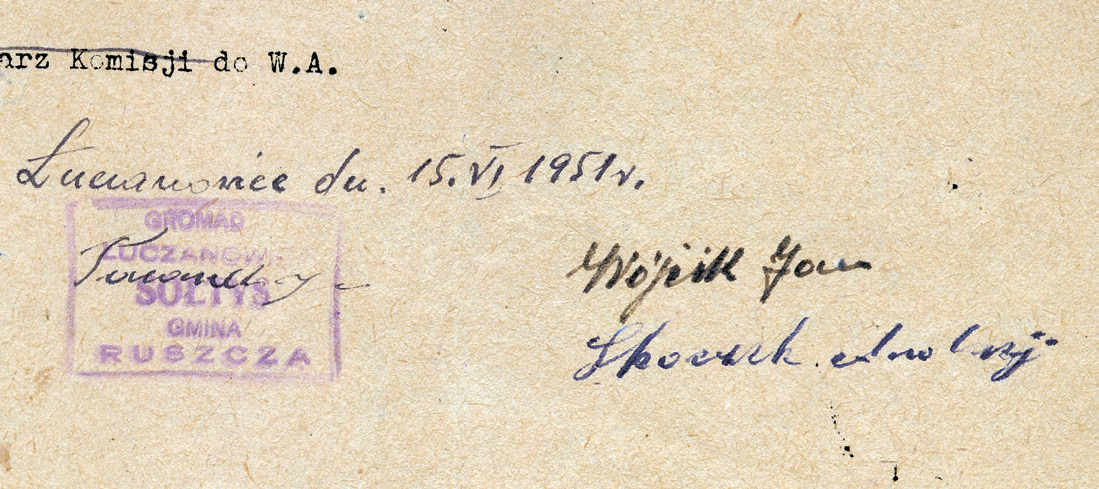 arz Komisji do W.A.
Łuczanowice dn. 15.VI 1951r.
GROMAD
ŁUCZANOWI
SOŁTYS
GMINA
RUSZCZA
Wójcik Jan
Skoczek Andrzej